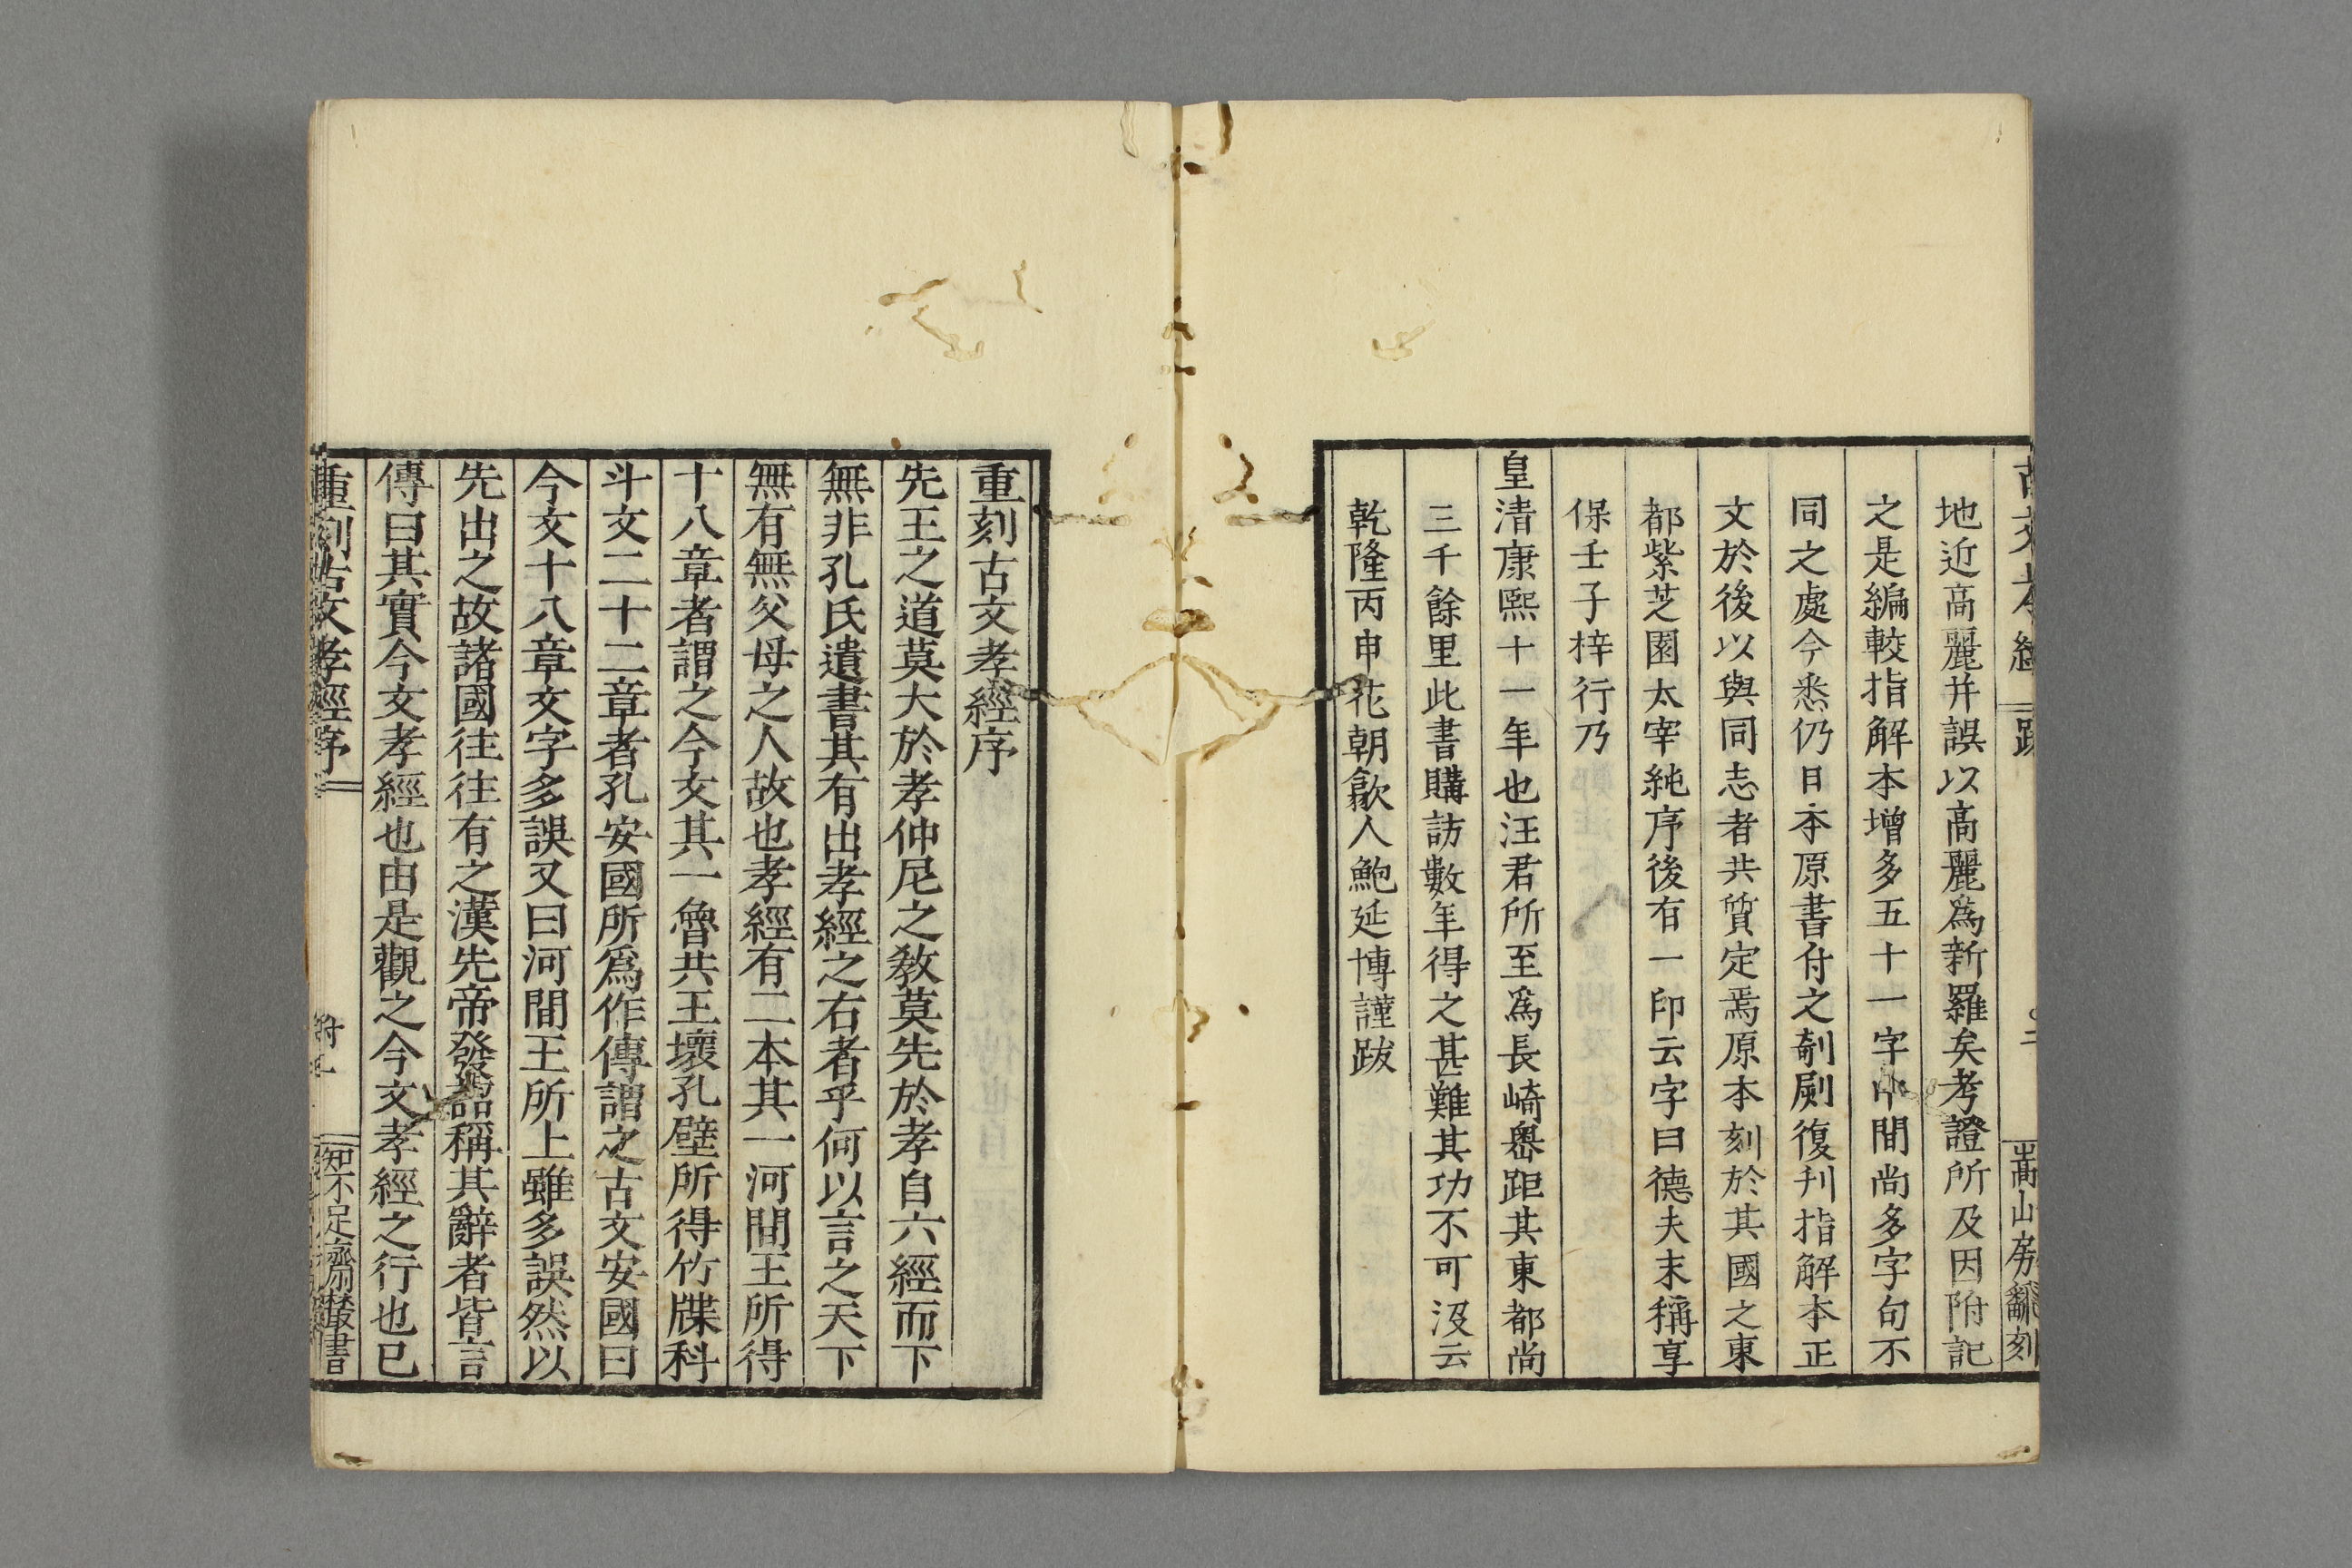 地近高麗并誤以高麗爲新羅矣考證所及因附記
之是編較指解本增多五十一字中間尚多字句不
同之處今悉仍日本原書付之剞劂復刋指解本正
文於後以與同志者共質定焉原本刻於其國之東
都紫芝園太宰純序後有一印云字曰德夫末稱享
保壬子梓行乃
皇清康熙十一年也汪君所至爲長崎嶴距其東都尚
三千餘里此書購訪數年得之甚難其功不可沒云
乾隆丙申花朝歙人鮑延博謹跋
嵩山房翻刻
重刻古文孝經序
先王之道莫大於孝仲尼之敎莫先於孝自六經而下
無非孔氏遺書其有出孝經之右者乎何以言之天下
無有無父母之人故也孝經有二本其一河間王所得
十八章者謂之今文其一魯共王壞孔壁所得竹牒科
斗文二十二章者孔安國所爲作傳謂之古文安國曰
今文十八章文字多誤又曰河間王所上雖多誤然以
先出之故諸國往往有之漢先帝發詔稱其辭者皆言
傳曰其實今文孝經也由是觀之今文孝經之行也已
重刻古文孝經序
知不足齋叢書